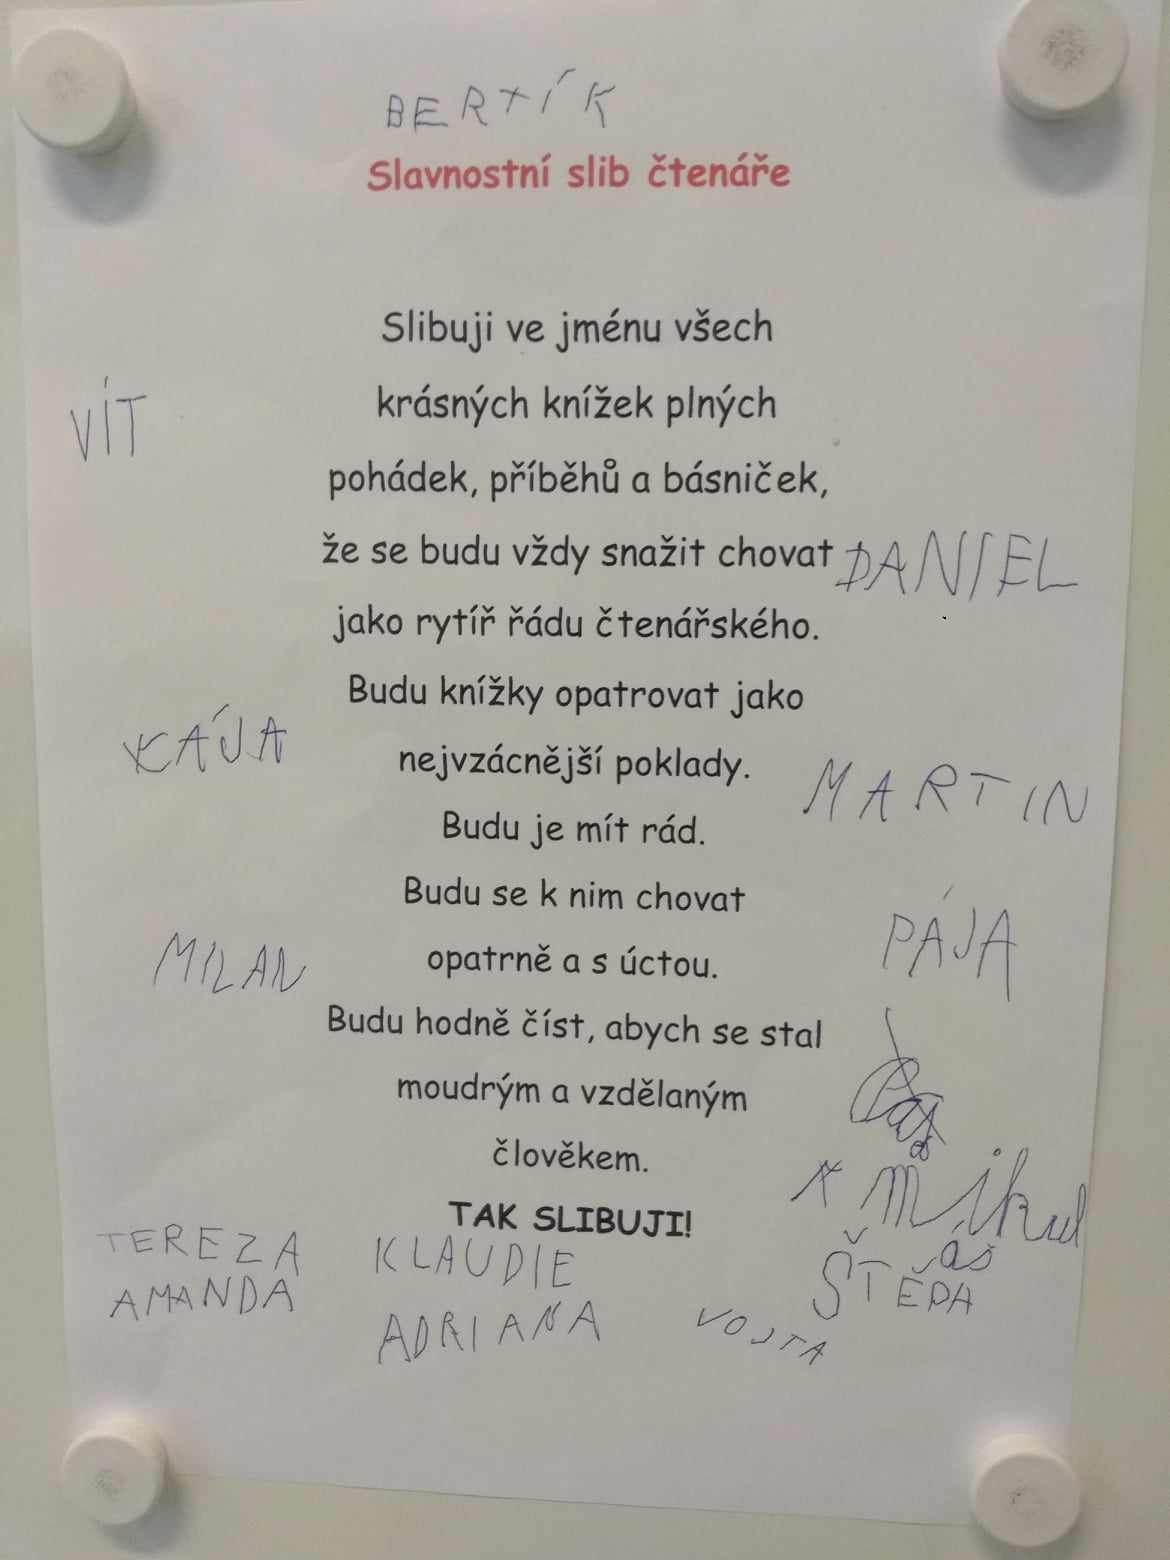 BERTÍK
Slavnostní slib čtenáře
Slibuji ve jménu všech
VÍT
krásných knížek plných
pohádek, příběhů a básniček,
že se budu vždy snažit chovat
DANIEL
jako rytíř řádu čtenářského.
Budu knížky opatrovat jako
KÁJA
nejvzácnější poklady.
MARTIN
Budu je mít rád.
Budu se k nim chovat
PÁJA
MILAN
opatrně a s úctou.
Budu hodně číst, abych se stal
moudrým a vzdělaným
člověkem.
mikul
áš
TAK SLIBUJI!
TEREZA
KLAUDIE
ŠTĚPA
AMANDA
ADRIANA
VOJTA